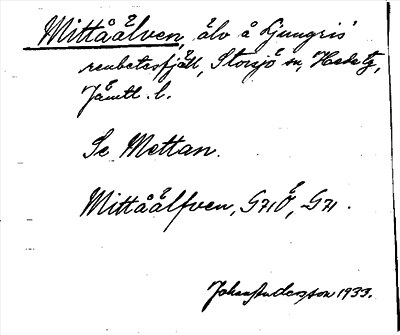 Mittåälven, älv å Ljungris
renbetesfjäll, Storsjö sn, Hede tg,
Jämtl. l.
Se Mettan.
Mittåälfven, G71Ö, G71.
Johan Andersson 1933.